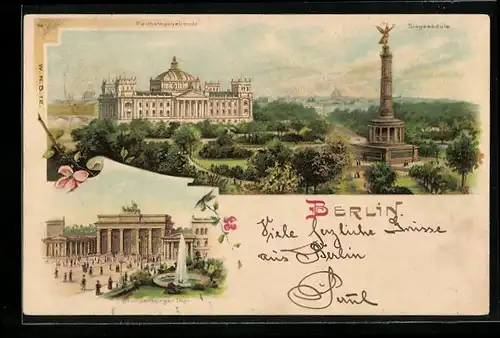 Reichstagsgebäude
Siegessäule
BERLIN.
Viele herzliche Grüsse
aus Berlin
Paul
Brandenburger Tor